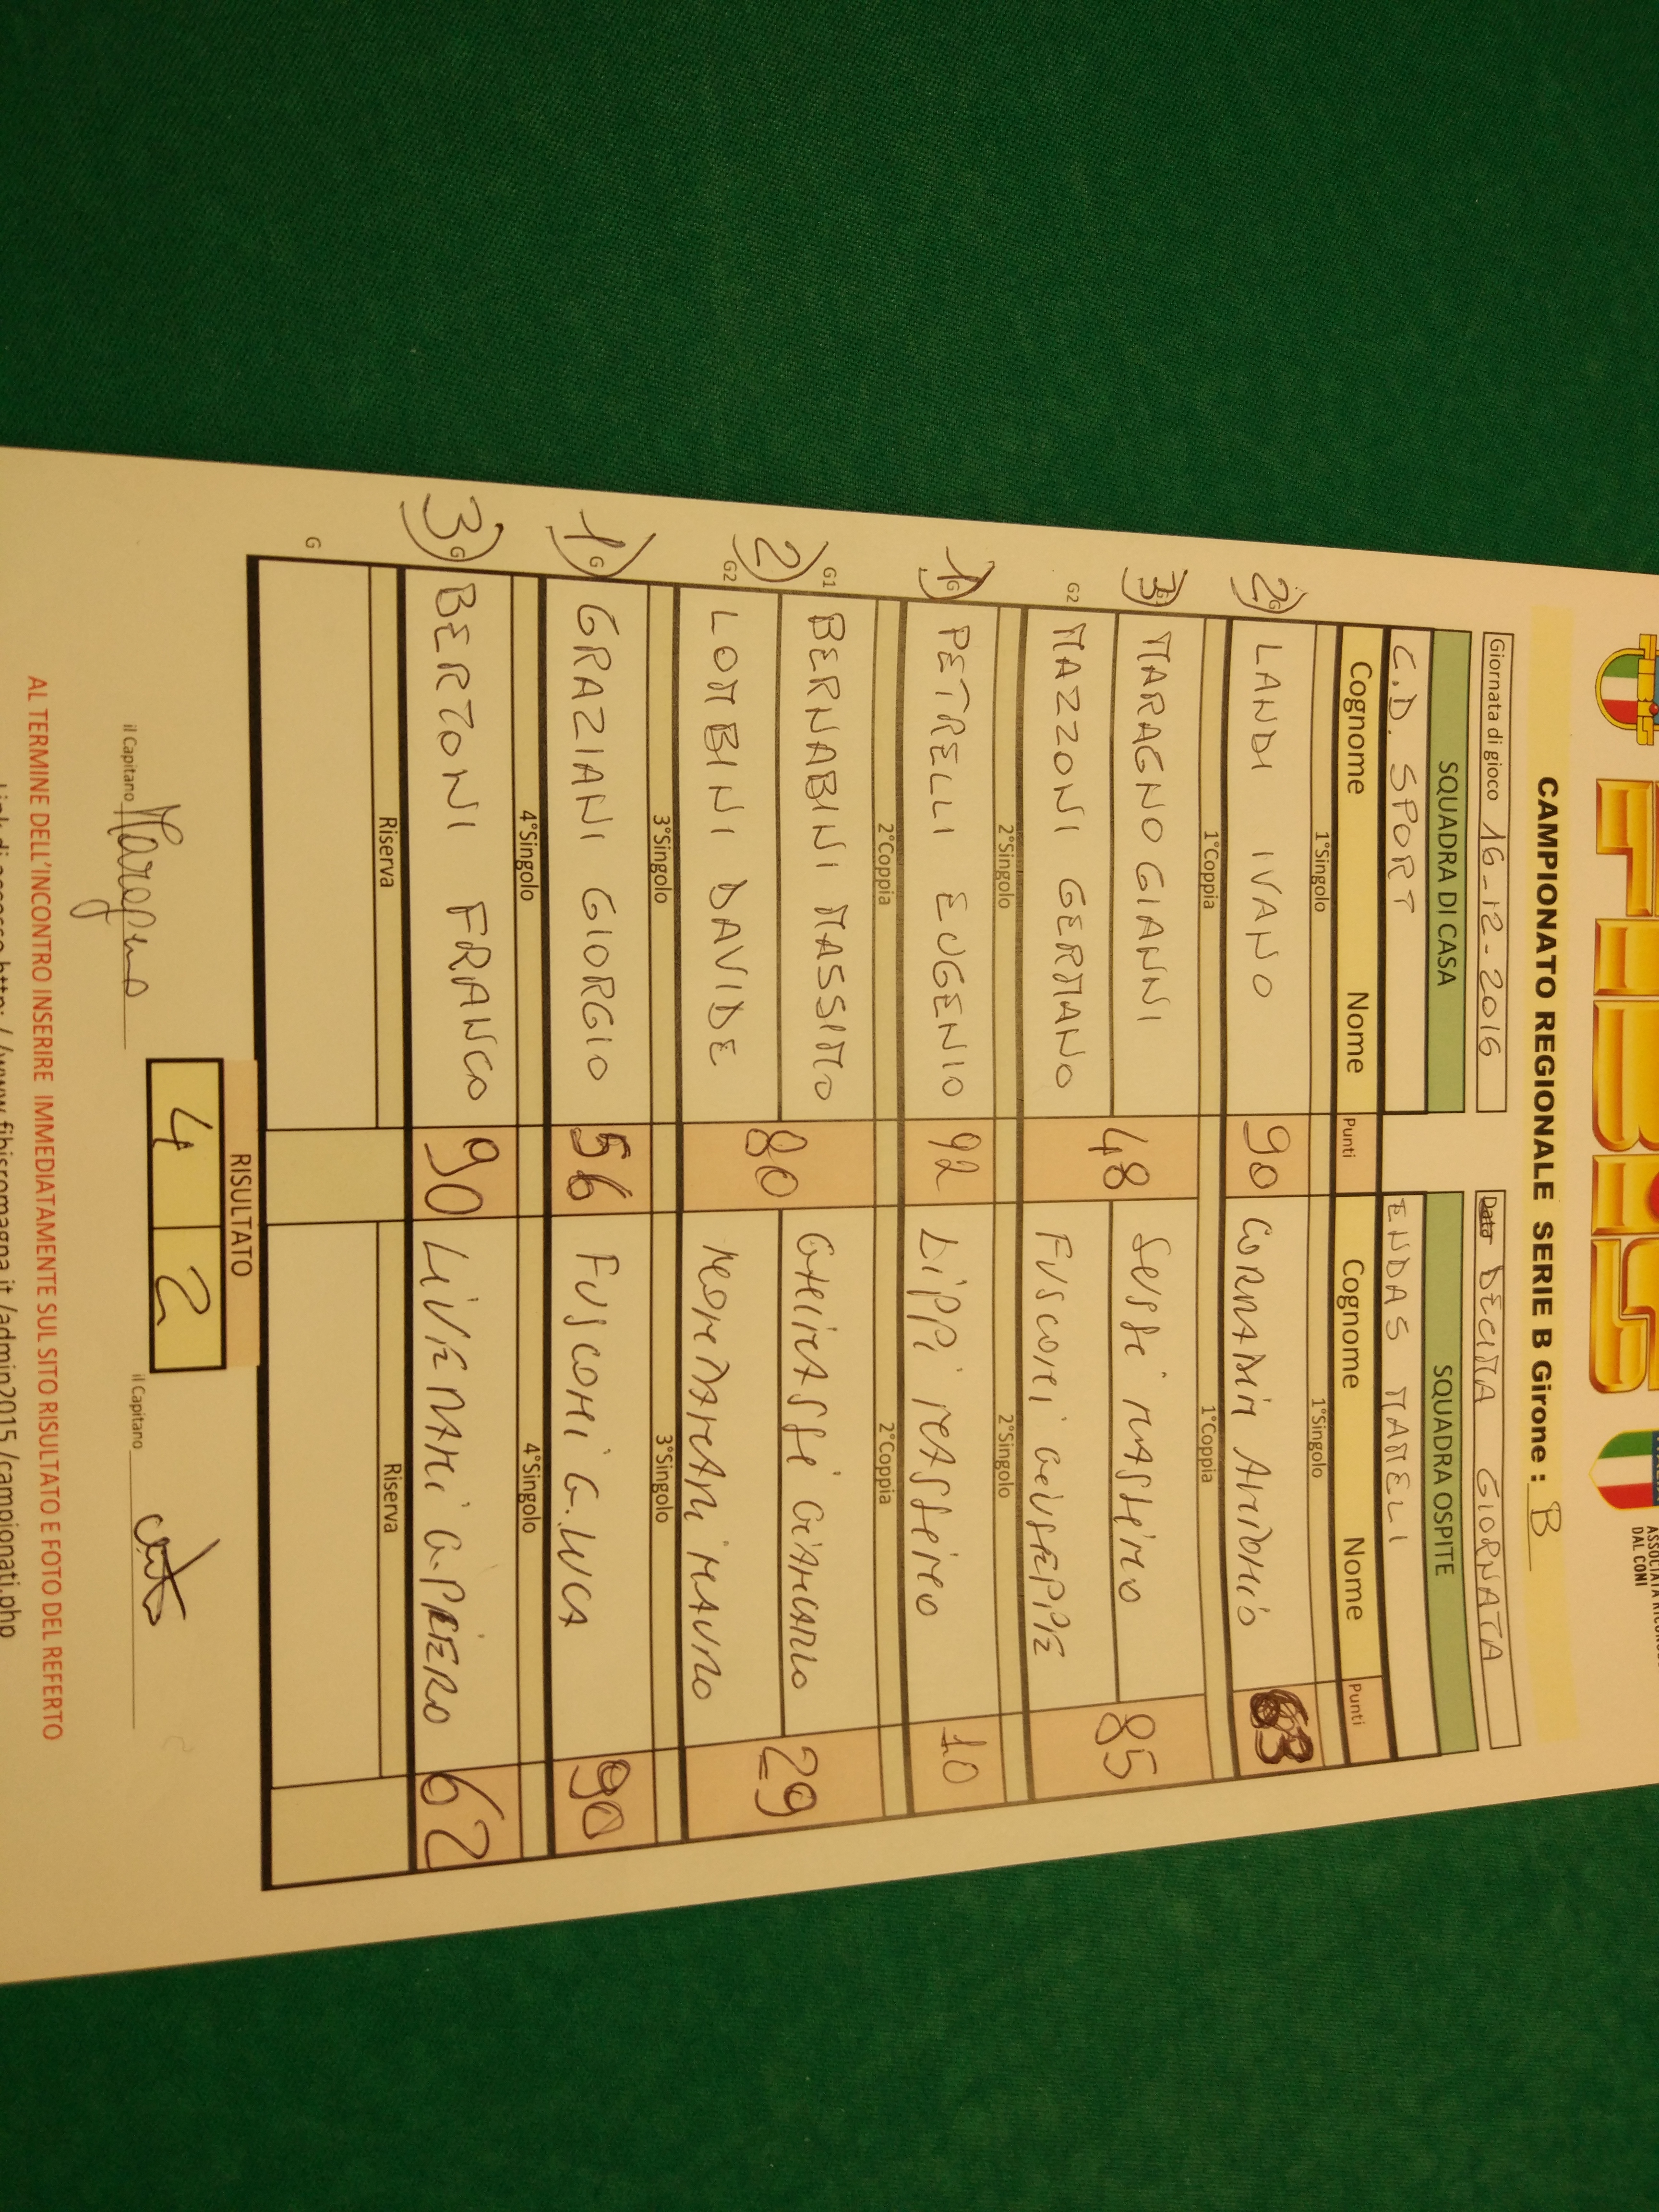 FIBIS
ASSOCIATA
DAL CONI
CAMPIONATO REGIONALE SERIE B Girone : B
Giornata di gioco 16-12-2016 Data DECIMA GIORNATA
SQUADRA DI CASA SQUADRA OSPITE
C.D. SPORT ENDAS MAMELI
Cognome Nome Punti Cognome Nome Punti
1°Singolo 1°Singolo
2) LANDI IVANO 90 CORRADINI ANTONIO 63
1°Coppia 1°Coppia
3) MARAGNO GIANNI 48 SESSI MASSIMO 85
G2 MAZZONI GERMANO FUSCONI GIUSEPPE
2°Singolo 2°Singolo
1) G PETRELLI EUGENIO 92 LIPPI MASSIMO 10
2°Coppia 2°Coppia
G1 BERNABINI MASSIMO 80 GIANCARLO 29
2)
G2 LOMBINI DAVIDE MAURO
3°Singolo 3°Singolo
1) G GRAZIANI GIORGIO 56 FUSCONI G.LUCA 90
4°Singolo 4°Singolo
3) G BERTONI FRANCO 90 LIVERANI G.PIERO 62
Riserva Riserva
G
RISULTATO
4 2
il Capitano Maragno il Capitano
AL TERMINE DELL'INCONTRO INSERIRE IMMEDIATAMENTE SUL SITO RISULTATO E FOTO DEL REFERTO
Link di accesso http://www.fibisromagna.it/admin2015/campionati.php